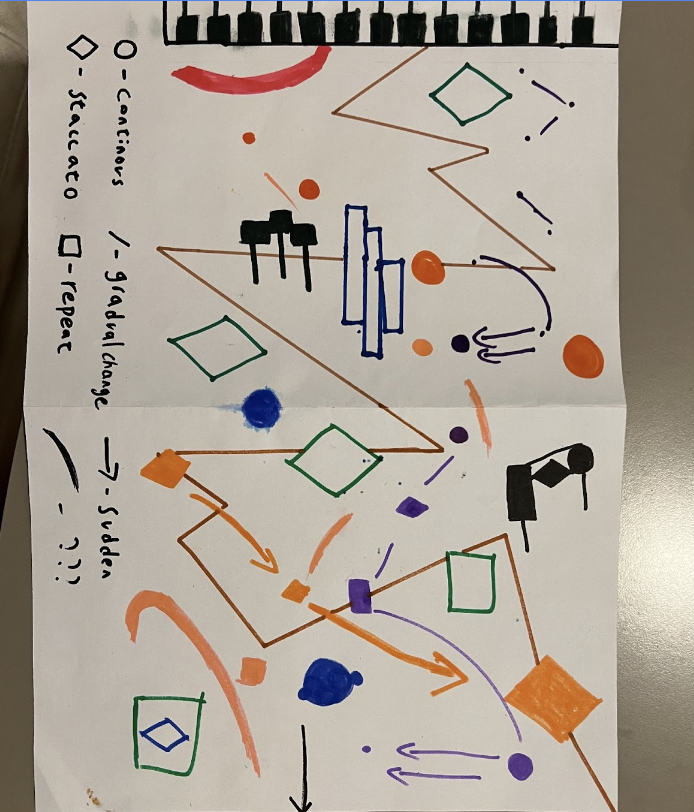 O - continous / - gradual change → - sudden
◇ - staccato □ - repeat - ???